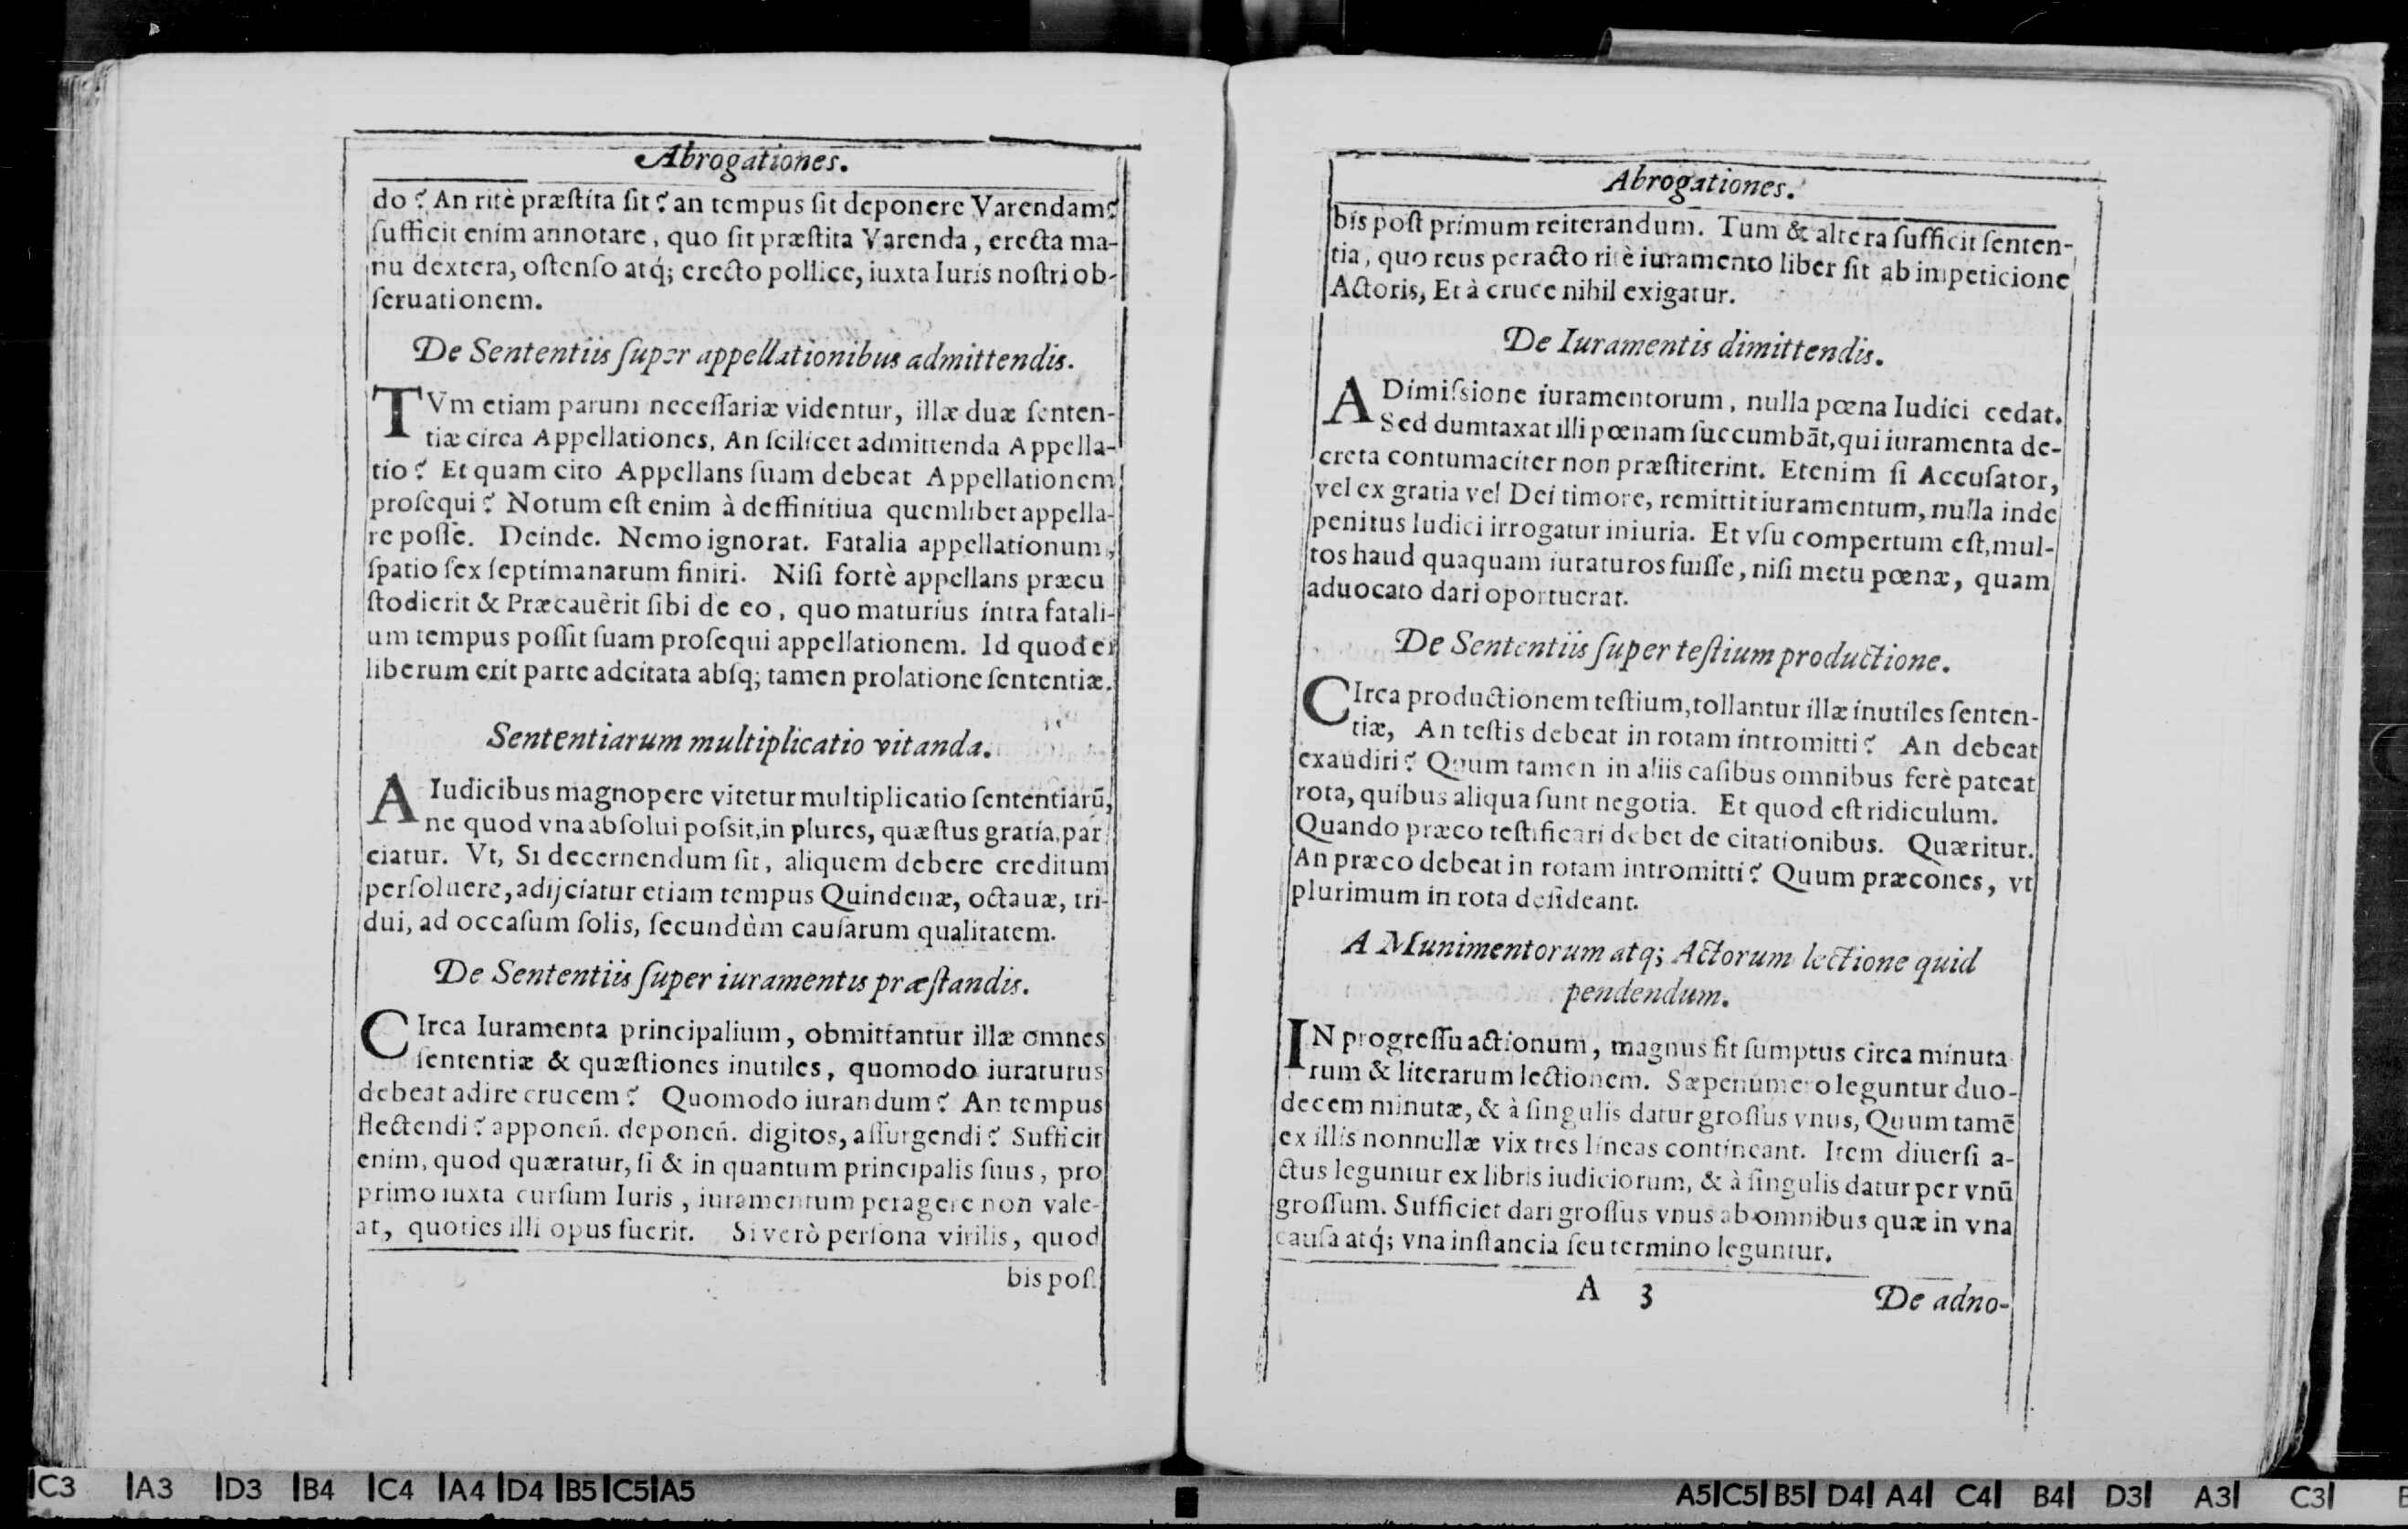 Abrogationes.
do? An ritè præſtita ſit? an tempus ſit deponere Varendam?
ſufficit enim annotare, quo ſit præſtita Varenda, erecta ma-
nu dextera, oſtenſo atq́; erecto pollice, iuxta Iuris noſtri ob-
ſeruationem.
De Sententiis ſuper appellationibus admittendis.
TVm etiam parum neceſſariæ videntur, illæ duæ ſenten-
tiæ circa Appellationes, An ſcilicet admittenda Appella-
tio? Et quam cito Appellans ſuam debeat Appellationem
proſequi? Notum eſt enim à deffinitiua quemlibet appella-
re poſſe. Deinde. Nemo ignorat. Fatalia appellationum,
ſpatio ſex ſeptimanarum finiri. Niſi fortè appellans præcu
ſtodierit & Præcauèrit ſibi de eo, quo maturius intra fatali-
um tempus poſſit ſuam proſequi appellationem. Id quod ei
liberum erit parte adcitata abſq; tamen prolatione ſententiæ.
Sententiarum multiplicatio vitanda.
A Iudicibus magnopere vitetur multiplicatio ſententiarū,
ne quod vna abſolui poſsit, in plures, quæſtus gratia, par
ciatur. Vt, Si decernendum ſit, aliquem debere creditum
perſoluere, adijciatur etiam tempus Quindenæ, octauæ, tri-
dui, ad occaſum ſolis, ſecundùm cauſarum qualitatem.
De Sententiis ſuper iuramentis præſtandis.
CIrca Iuramenta principalium, obmittantur illæ omnes
ſententiæ & quæſtiones inutiles, quomodo iuraturus
debeat adire crucem? Quomodo iurandum? An tempus
flectendi? apponeń. deponeń. digitos, aſſurgendi? Sufficit
enim, quod quæratur, ſi & in quantum principalis ſuus, pro
primo iuxta curſum Iuris, iuramentum peragere non vale-
at, quoties illi opus fuerit. Si verò perſona virilis, quod
bis poſ.
Abrogationes.
bis poſt primum reiterandum. Tum & altera ſufficit ſenten-
tia, quo reus peracto ritè iuramento liber ſit ab impeticione
Actoris, Et à cruce nihil exigatur.
De Iuramentis dimittendis.
A Dimiſsione iuramentorum, nulla pœna Iudici cedat.
Sed dumtaxat illi pœnam ſuccumbāt, qui iuramenta de-
creta contumaciter non præſtiterint. Etenim ſi Accuſator,
vel ex gratia vel Dei timore, remittit iuramentum, nulla inde
penitus Iudici irrogatur iniuria. Et vſu compertum eſt, mul-
tos haud quaquam iuraturos fuiſſe, niſi metu pœnæ, quam
aduocato dari oportuerat.
De Sententiis ſuper teſtium productione.
CIrca productionem teſtium, tollantur illæ inutiles ſenten-
tiæ, An teſtis debeat in rotam intromitti? An debeat
exaudiri? Quum tamen in aliis caſibus omnibus ferè pateat
rota, quibus aliqua ſunt negotia. Et quod eſt ridiculum.
Quando præco teſtificari debet de citationibus. Quæritur.
An præco debeat in rotam intromitti? Quum præcones, vt
plurimum in rota deſideant.
A Munimentorum atq; Actorum lectione quid
pendendum.
IN progreſſu actionum, magnus fit ſumptus circa minuta
rum & literarum lectionem. Sæpenumero leguntur duo-
decem minutæ, & à ſingulis datur groſſus vnus, Quum tamē
ex illis nonnullæ vix tres lineas contineant. Item diuerſi a-
ctus leguntur ex libris iudiciorum, & à ſingulis datur per vnū
groſſum. Sufficiet dari groſſus vnus ab omnibus quæ in vna
cauſa atq́; vna inſtancia ſeu termino leguntur.
A 3 De adno-
C3 A3 D3 B4 C4 A4 D4 B5 C5 A5
A5 C5 B5 D4 A4 C4 B4 D3 A3 C3